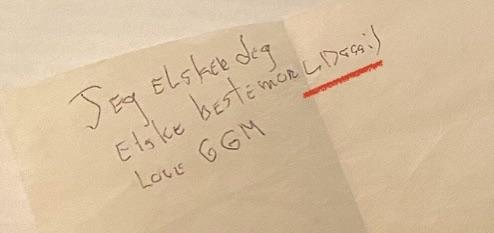 Jeg elsker deg
Elske bestemor
Love GGM